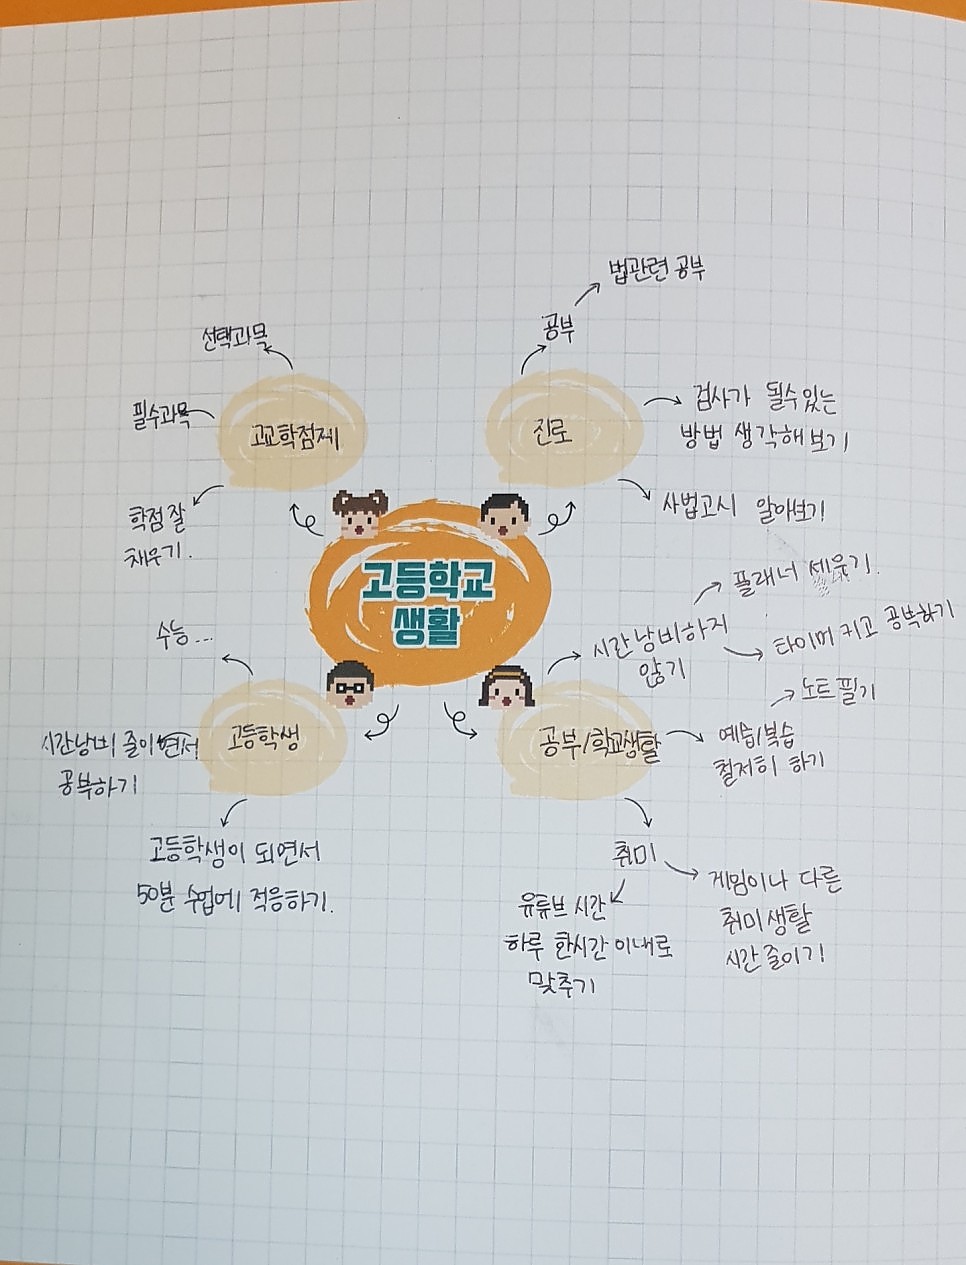 고등학교
생활
고교학점제
선택과목
필수과목
학점 잘
채우기.
진로
공부
법관련 공부
검사가 될수있는
방법 생각해보기
사법고시 알아보기
공부/학교생활
시간낭비하지
않기
플래너 세우기.
타이머 키고 공부하기
예습/복습
철저히 하기
노트필기
취미
유튜브 시간
하루 한시간 이내로
맞추기
게임이나 다른
취미생활
시간줄이기
고등학생
수능...
시간낭비 줄이면서
공부하기
고등학생이 되면서
50분 수업에 적응하기.